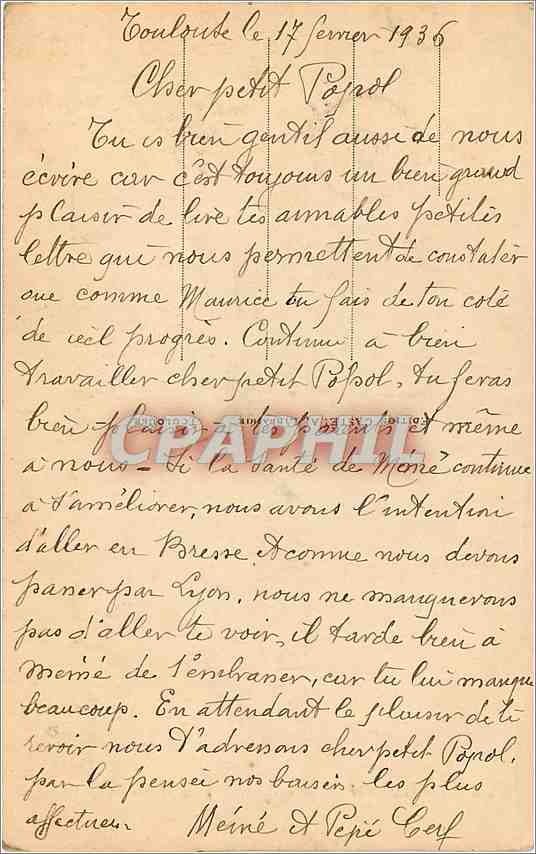 Toulouse le 17 fevrier 1936
Cher petit Popol
Tu es bien gentil aussi de nous
écrire car c'est toujours un bien grand
plaisir de lire tes aimables petites
lettre qui nous permettent de constater
que comme Maurice tu fais de ton coté
de réel progrès. Continue à bien
travailler cher petit Popol, tu feras
bien plaisir à tes parents et même
à nous - Si la santé de Mémé continue
à s'améliorer, nous avons l'intention
d'aller en Bresse et comme nous devons
passer par Lyon, nous ne manquerons
pas d'aller te voir, il tarde bien à
mémé de t'embrasser, car tu lui manque
beaucoup. En attendant le plaisir de te
revoir nous t'adressons cher petit Popol,
par la pensée nos baisers les plus
affectueux
Mémé et Pépé Cerf
CPAPHIL